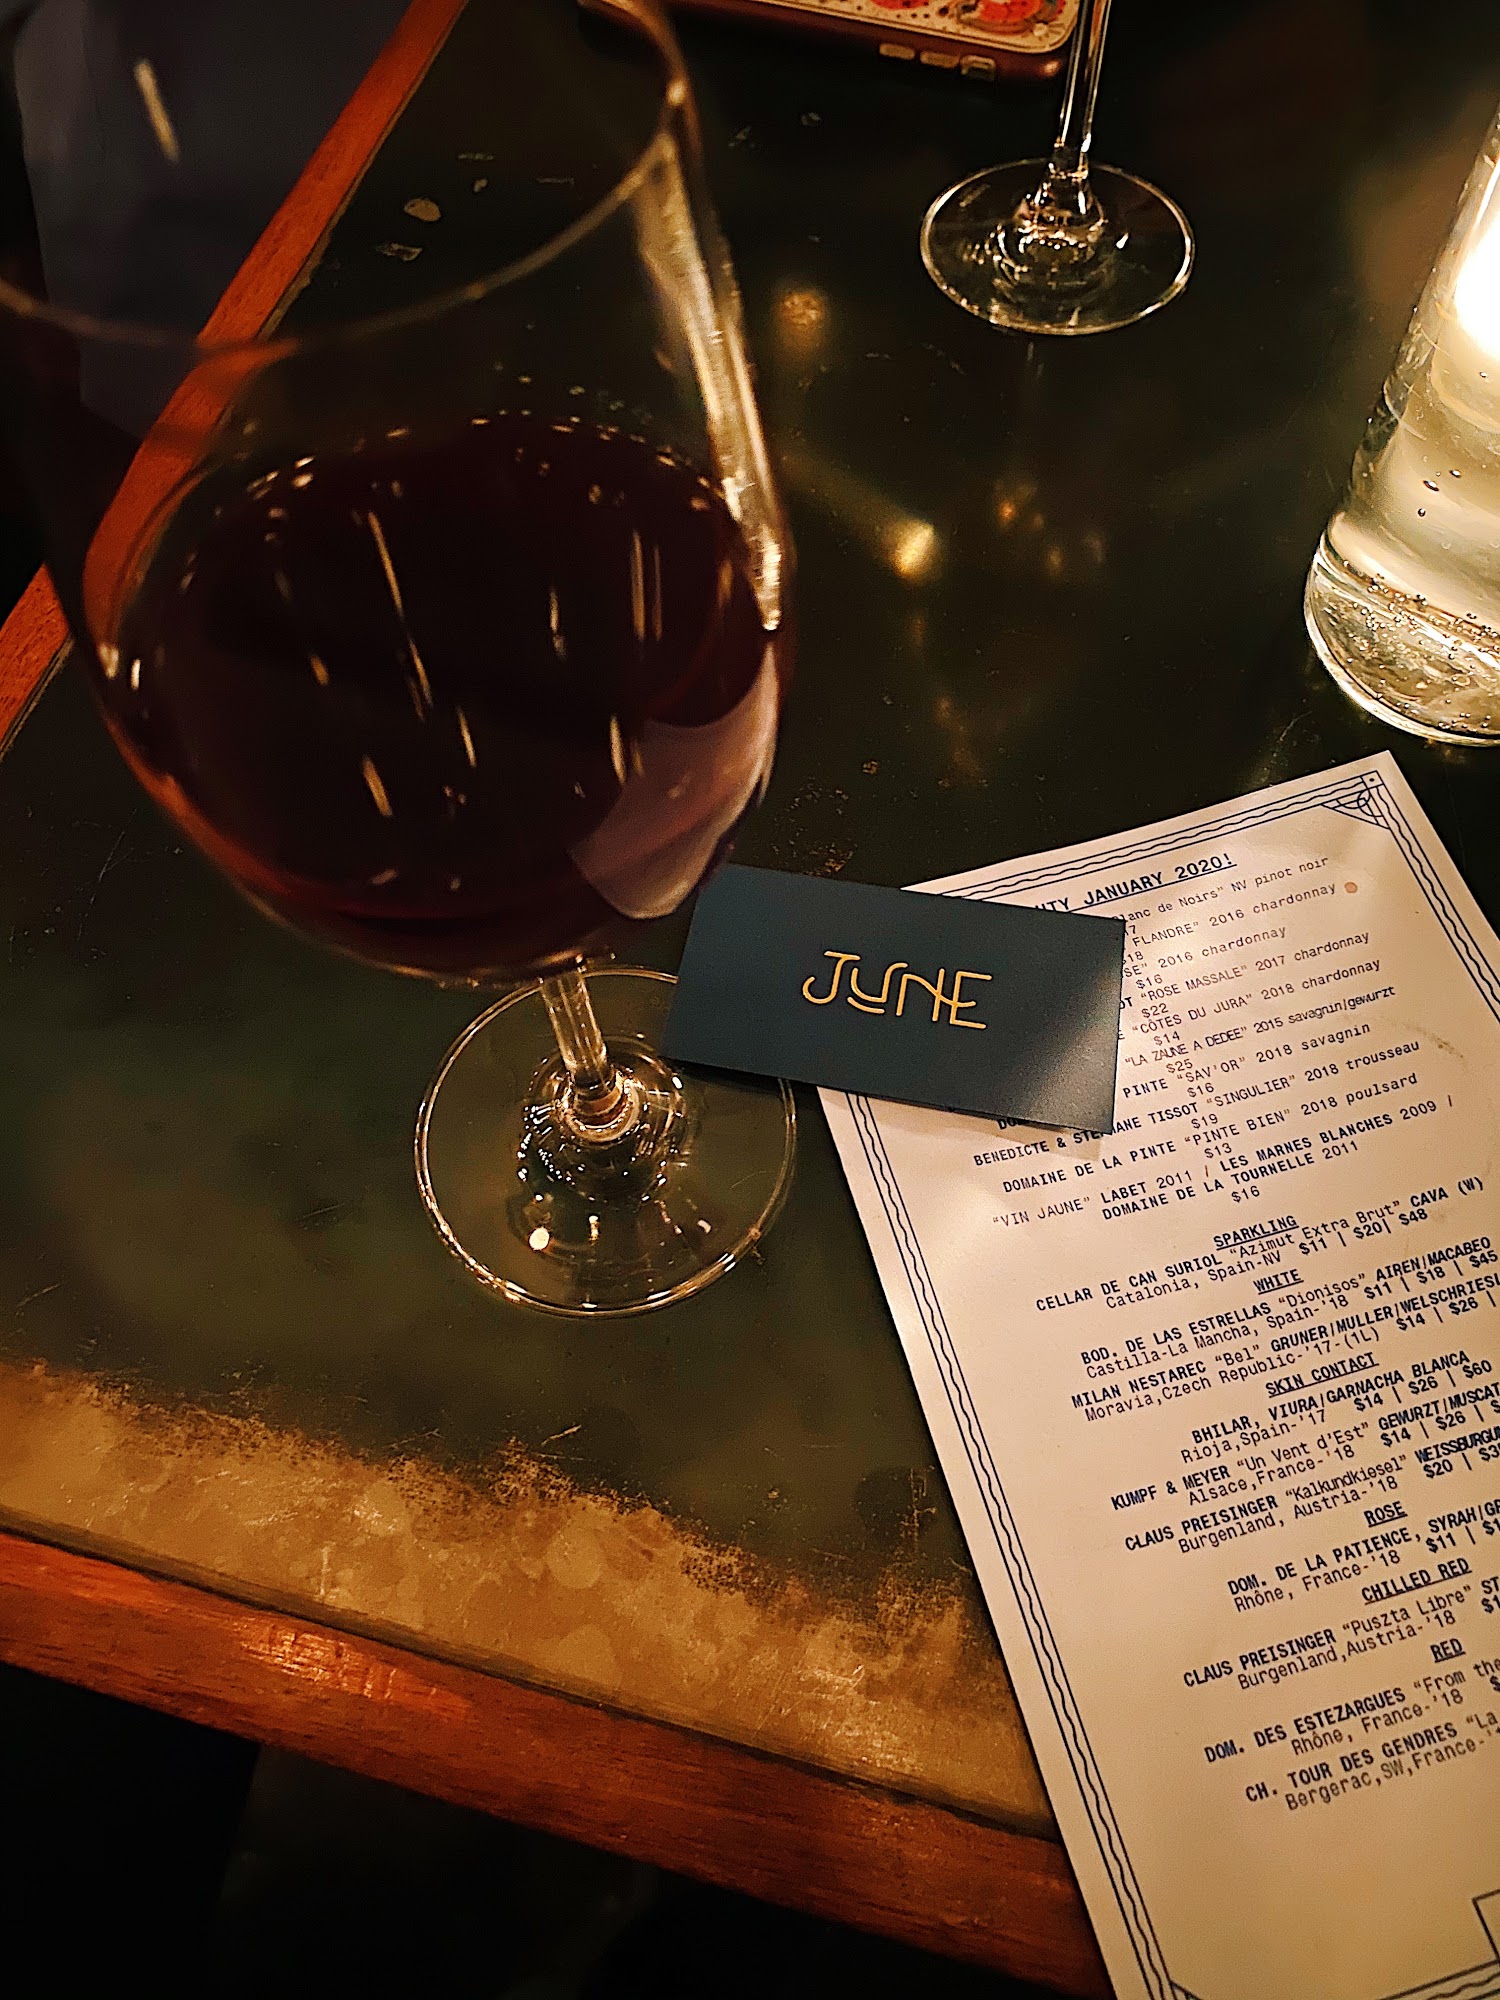 JUNE
JANUARY 2020!
Blanc de Noirs" NV pinot noir
FLANDRE" 2016 chardonnay
$18
2016 chardonnay
$16
"ROSE MASSALE" 2017 chardonnay
$22
"CÔTES DU JURA" 2018 chardonnay
$14
"LA ZAUNE A DEDEE" 2015 savagnin/gewurzt
$25
PINTE "SAV'OR" 2018 savagnin
$16
BENEDICTE & STEPHANE TISSOT "SINGULIER" 2018 trousseau
$19
DOMAINE DE LA PINTE "PINTE BIEN" 2018 poulsard
$13
"VIN JAUNE" LABET 2011 / LES MARNES BLANCHES 2009 /
DOMAINE DE LA TOURNELLE 2011
$16
SPARKLING
CELLAR DE CAN SURIOL "Azimut Extra Brut" CAVA (W)
Catalonia, Spain-NV $11 | $20| $48
WHITE
BOD. DE LAS ESTRELLAS "Dionisos" AIREN/MACABEO
Castilla-La Mancha, Spain-'18 $11 | $18 | $45
MILAN NESTAREC "Bel" GRUNER/MULLER/WELSCHRIESL
Moravia,Czech Republic-'17-(1L) $14 | $26 |
SKIN CONTACT
BHILAR, VIURA/GARNACHA BLANCA
Rioja,Spain-'17 $14 | $26 | $60
KUMPF & MEYER "Un Vent d'Est" GEWURZT/MUSCAT
Alsace,France-'18 $14 | $26 |
CLAUS PREISINGER "Kalkundkiesel" WEISSBURGUN
Burgenland, Austria-'18 $20 |
ROSE
DOM. DE LA PATIENCE, SYRAH/GR
Rhône, France-'18 $11 |
CHILLED RED
CLAUS PREISINGER "Puszta Libre" ST
Burgenland,Austria-'18
RED
DOM. DES ESTEZARGUES "From the
Rhône, France-'18
CH. TOUR DES GENDRES "La
Bergerac,SW,France-'